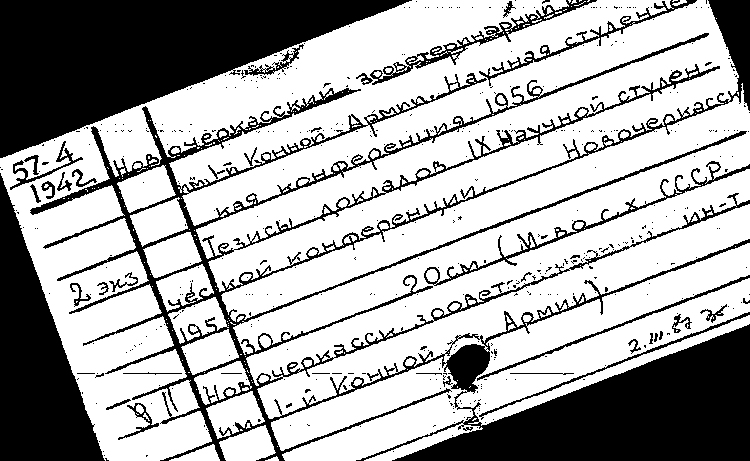 57-4
1942.
Новочеркасский зооветеринарный
им. 1-й Конной Армии. Научная студенчес
кая конференция. 1956
Тезисы докладов IX научной студен-
ческой конференции. Новочеркасск
1956.
2 экз
30 с. 20 см. (М-во с.х. СССР.
Новочеркасск. зооветеринарный ин-т
им. 1-й Конной Армии).